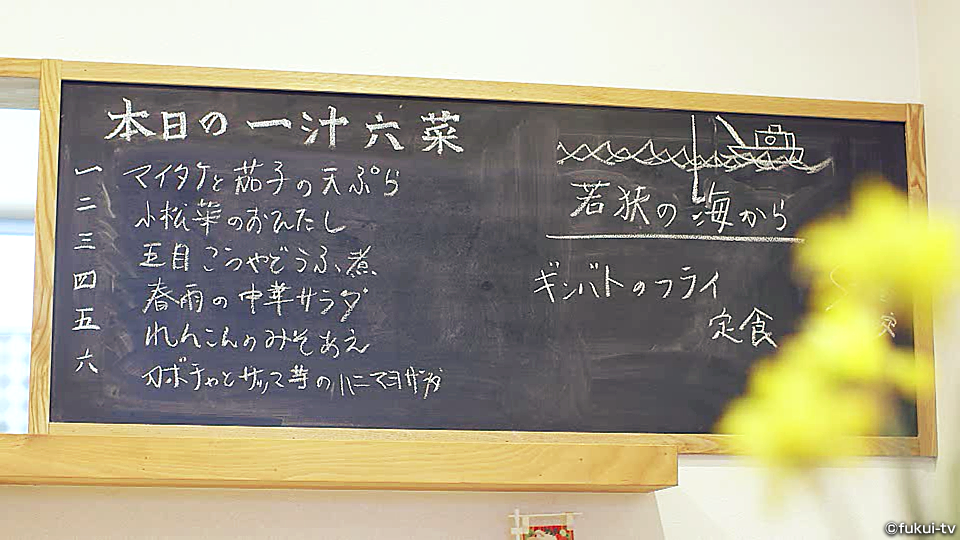 本日の一汁六菜
一 マイタケと茄子の天ぷら
二 小松菜のおひたし
三 五目こうやどうふ煮
四 春雨の中華サラダ
五 れんこんのみそあえ
六 カボチャとサツマ芋のハニマヨサラダ
若狭の海から
ギンバトのフライ
定食
©fukui-tv